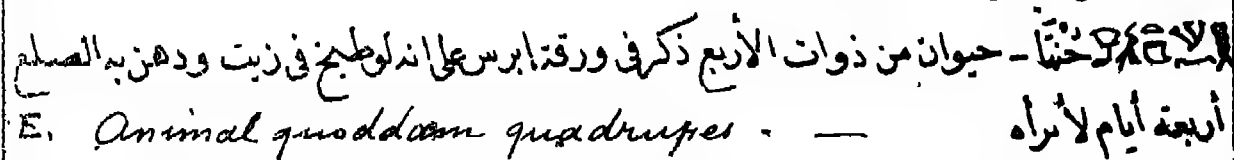 خُنْتَا - حيوان من ذوات الأربع ذكر فى ورقة ابرس على انه لو طبخ فى زيت ودهن به الصلع
أربعة أيام لأبرأه
E. Animal quoddam quadrupes. —